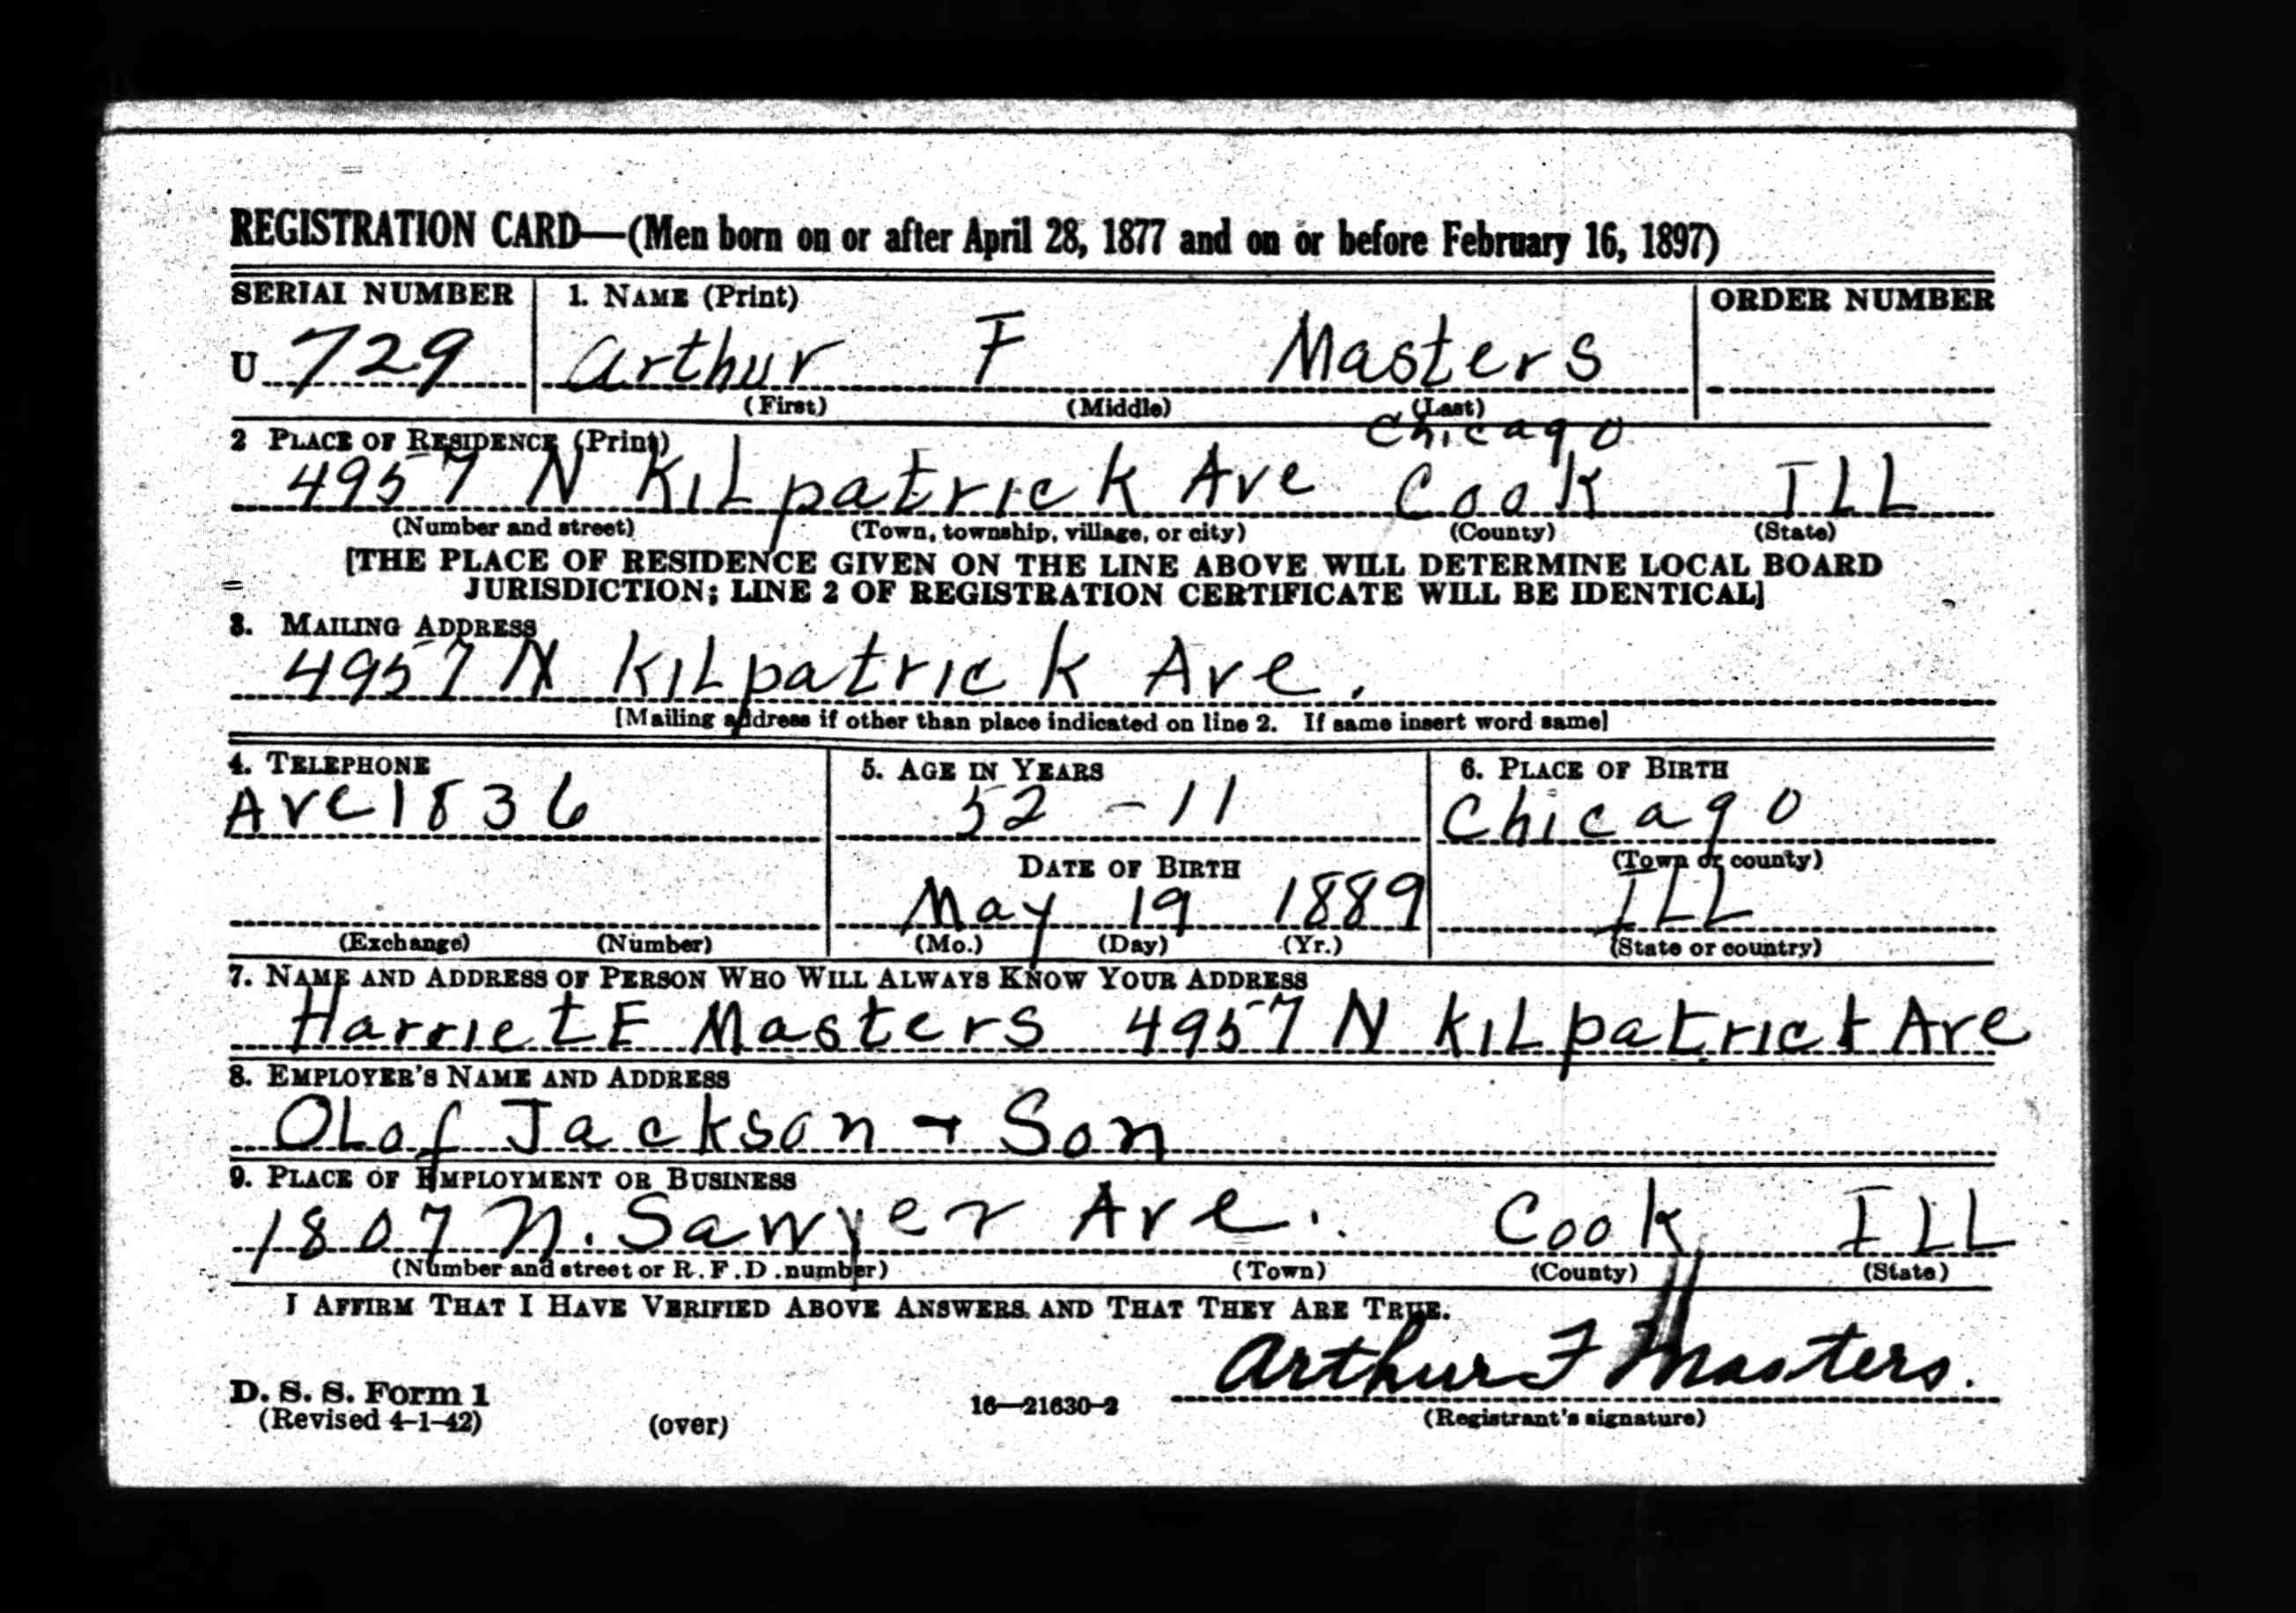 REGISTRATION CARD—(Men born on or after April 28, 1877 and on or before February 16, 1897)
SERIAL NUMBER 1. NAME (Print) ORDER NUMBER
U 729 Arthur F Masters
(First) (Middle) (Last)
Chicago
2 PLACE OF RESIDENCE (Print)
4957 N KILpatrick Ave Cook ILL
(Number and street) (Town, township, village, or city) (County) (State)
[THE PLACE OF RESIDENCE GIVEN ON THE LINE ABOVE WILL DETERMINE LOCAL BOARD
JURISDICTION; LINE 2 OF REGISTRATION CERTIFICATE WILL BE IDENTICAL]
3. MAILING ADDRESS
4957 N KILpatrick Ave.
[Mailing address if other than place indicated on line 2. If same insert word same]
4. TELEPHONE 5. AGE IN YEARS 6. PLACE OF BIRTH
Ave 1836 52 - 11 Chicago
(Town or county)
DATE OF BIRTH
May 19 1889 ILL
(Exchange) (Number) (Mo.) (Day) (Yr.) (State or country)
7. NAME AND ADDRESS OF PERSON WHO WILL ALWAYS KNOW YOUR ADDRESS
Harriet E Masters 4957 N KILpatrick Ave
8. EMPLOYER'S NAME AND ADDRESS
OLof Jackson + Son
9. PLACE OF EMPLOYMENT OR BUSINESS
1807 N. Sawyer Ave. Cook ILL
(Number and street or R.F.D. number) (Town) (County) (State)
I AFFIRM THAT I HAVE VERIFIED ABOVE ANSWERS AND THAT THEY ARE TRUE.
Arthur F Masters.
D. S. S. Form 1
(Revised 4-1-42) (over) 16—21630-2 (Registrant's signature)